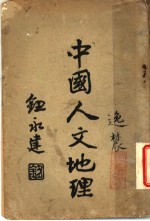 中國人文地理
鈕永建
逸農